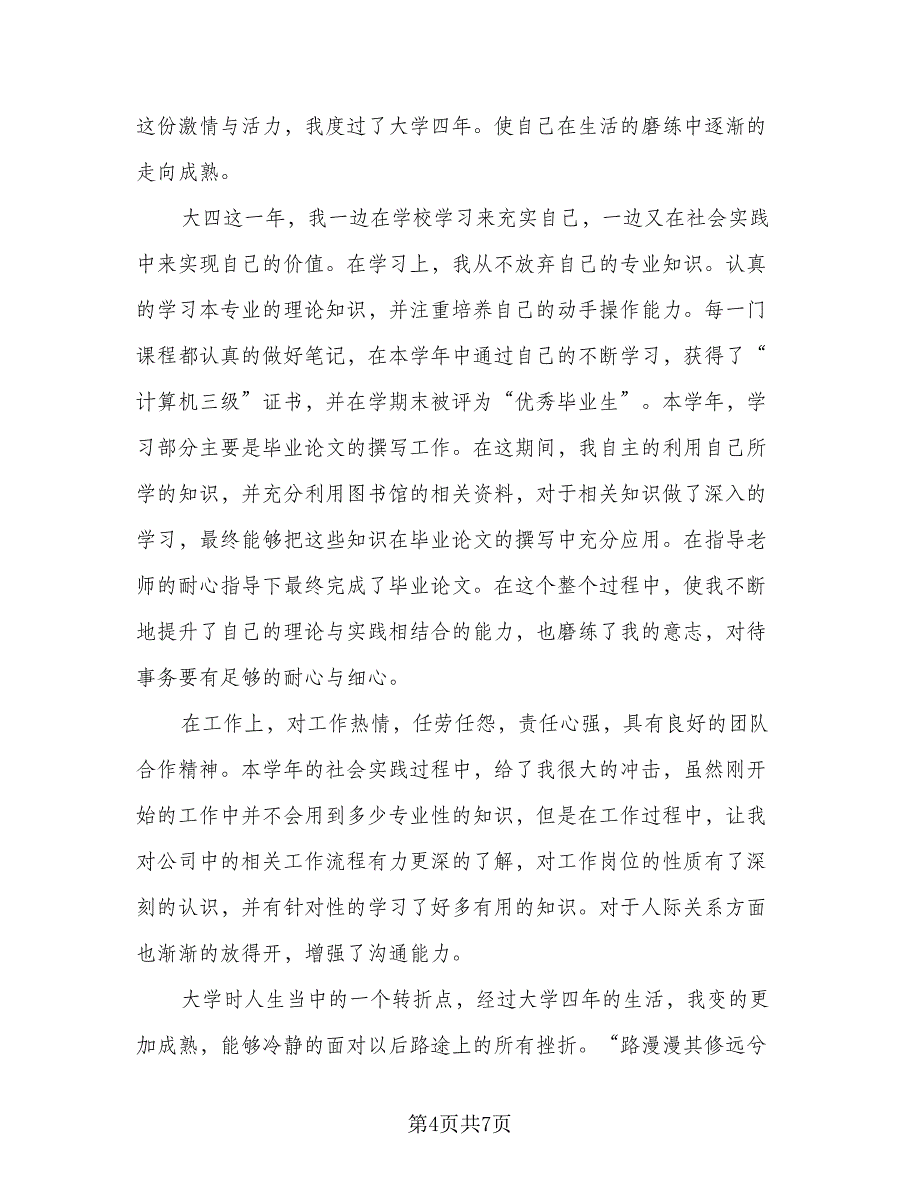 这份激情与活力，我度过了大学四年。使自己在生活的磨练中逐渐的
走向成熟。
大四这一年，我一边在学校学习来充实自己，一边又在社会实践
中来实现自己的价值。在学习上，我从不放弃自己的专业知识。认真
的学习本专业的理论知识，并注重培养自己的动手操作能力。每一门
课程都认真的做好笔记，在本学年中通过自己的不断学习，获得了“
计算机三级”证书，并在学期末被评为“优秀毕业生”。本学年，学
习部分主要是毕业论文的撰写工作。在这期间，我自主的利用自己所
学的知识，并充分利用图书馆的相关资料，对于相关知识做了深入的
学习，最终能够把这些知识在毕业论文的撰写中充分应用。在指导老
师的耐心指导下最终完成了毕业论文。在这个整个过程中，使我不断
地提升了自己的理论与实践相结合的能力，也磨练了我的意志，对待
事务要有足够的耐心与细心。
在工作上，对工作热情，任劳任怨，责任心强，具有良好的团队
合作精神。本学年的社会实践过程中，给了我很大的冲击，虽然刚开
始的工作中并不会用到多少专业性的知识，但是在工作过程中，让我
对公司中的相关工作流程有力更深的了解，对工作岗位的性质有了深
刻的认识，并有针对性的学习了好多有用的知识。对于人际关系方面
也渐渐的放得开，增强了沟通能力。
大学时人生当中的一个转折点，经过大学四年的生活，我变的更
加成熟，能够冷静的面对以后路途上的所有挫折。“路漫漫其修远兮
第4页共7页